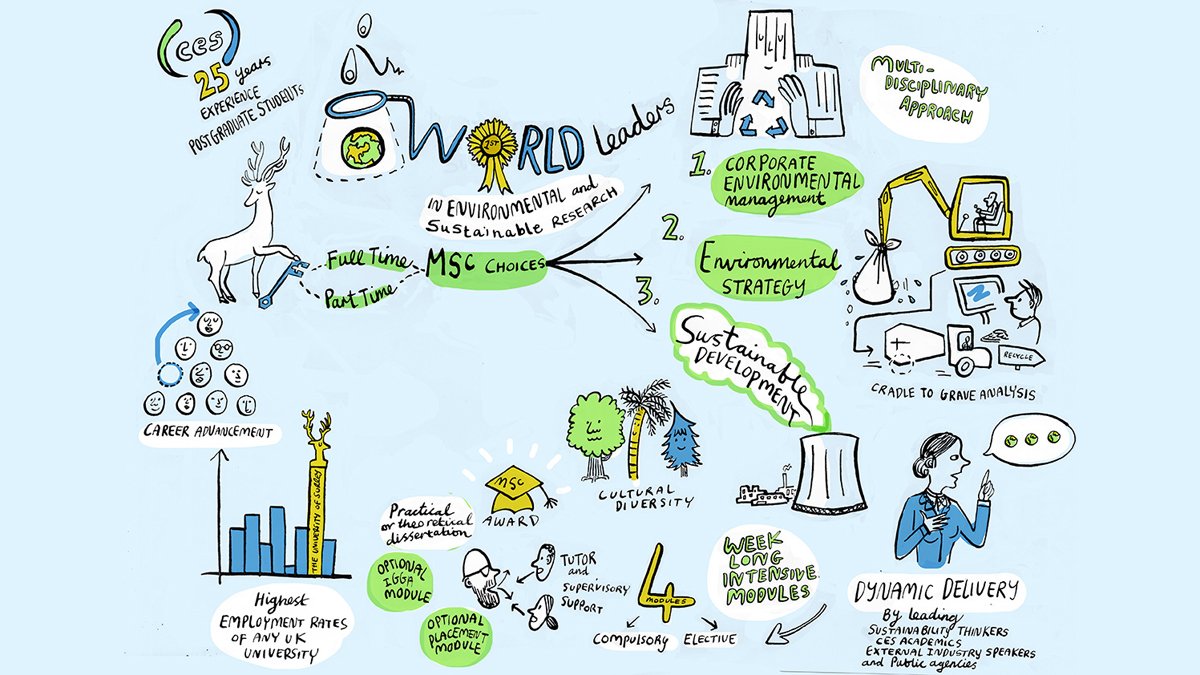 ces
25 years
EXPERIENCE
POSTGRADUATE STUDENTS
WORLD leaders
1ST
IN ENVIRONMENTAL and
Sustainable RESEARCH
MULTI-
DISCIPLINARY
APPROACH
Full Time
Part Time
MSc CHOICES
1. CORPORATE
ENVIRONMENTAL
management
2. Environmental
STRATEGY
3. Sustainable
DEVELOPMENT
RECYCLE
CRADLE TO GRAVE ANALYSIS
CAREER ADVANCEMENT
THE UNIVERSITY OF SURREY
Highest
EMPLOYMENT RATES
OF ANY UK
UNIVERSITY
MSC
AWARD
CULTURAL
DIVERSITY
Practical
or theoretical
dissertation
OPTIONAL
IGGA
MODULE
OPTIONAL
PLACEMENT
MODULE
TUTOR
and
SUPERVISORY
SUPPORT
4
MODULES
COMPULSORY
ELECTIVE
WEEK
LONG
INTENSIVE
MODULES
DYNAMIC DELIVERY
By leading
SUSTAINABILITY THINKERS
CES ACADEMICS
EXTERNAL INDUSTRY SPEAKERS
and Public agencies